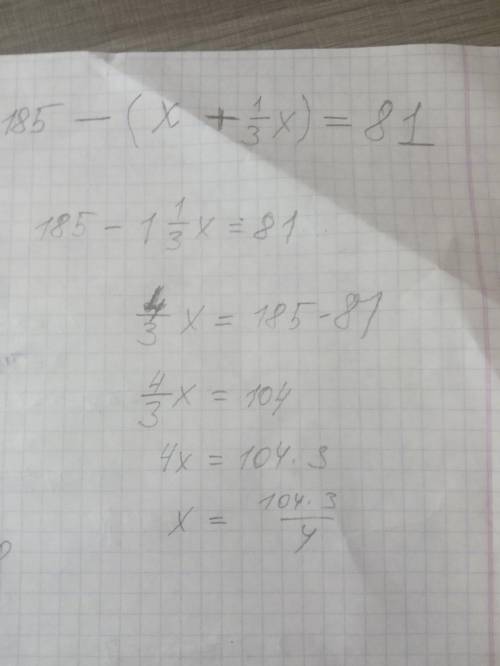 185 - (x + 1/3 x) = 81
185 - 1 1/3 x = 81
4/3 x = 185 - 81
4/3 x = 104
4x = 104 · 3
x = 104 · 3 / 4